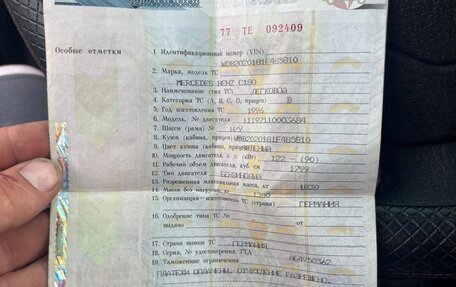 77 ТЕ 092409
Особые отметки
1. Идентификационный номер (VIN)
WDB2020181F485810
2. Марка, модель ТС
MERCEDES BENZ C180
3. Наименование (тип ТС) ЛЕГКОВОЙ
4. Категория ТС (А, В, С, D, прицеп) B
5. Год изготовления ТС 1996
6. Модель, № двигателя 11192110003684
7. Шасси (рама) № Н/У
8. Кузов (кабина, прицеп) № WDB2020181F485810
9. Цвет кузова (кабины, прицепа) ЗЕЛЕНЫЙ
10. Мощность двигателя, л. с. (кВт) 122 - (90)
11. Рабочий объем двигателя, куб. см 1799
12. Тип двигателя БЕНЗИНОВЫЙ
13. Разрешенная максимальная масса, кг 1830
14. Масса без нагрузки, кг
15. Организация-изготовитель ТС (страна) ГЕРМАНИЯ
16. Одобрение типа ТС № от
выдано
17. Страна вывоза ТС ГЕРМАНИЯ
18. Серия, № удостоверения, РТД АБ4950362
19. Таможенные ограничения
ПЛАТЕЖИ ОПЛАЧЕНЫ, ОТЧУЖДЕНИЕ РАЗРЕШЕНО.